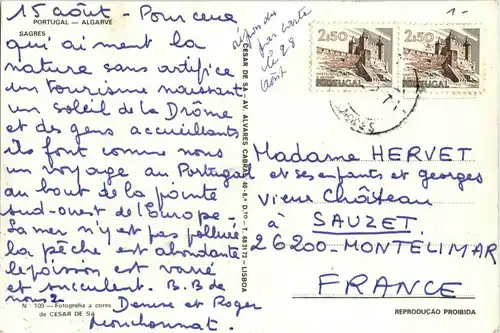 15 août - Pour ceux
PORTUGAL — ALGARVE
SAGRES
qui aiment la
nature sans artifice
un tourisme naissant
un soleil de la Drôme
et des gens accueillants
ils font comme nous
un voyage au Portugal
au bout de la pointe
sud-ouest de l'Europe -
La mer n'y est pas polluée
la pêche est abondante
le poisson est varié
et succulent. B.B de
nous 2
Denise et Roger
N.º 109 - Fotografia a cores
de CESAR DE SÁ
CESAR DE SÁ - AV. ALVARES CABRAL, 40-6.º D.to - T. 683172 - LISBOA
répondu
par carte
le 28
Août
1-
2$50
PORTUGAL
2$50
PORTUGAL
SAGRES
Madame HERVET
et ses enfants et georges
vieux Château
à SAUZET
26200 - MONTELIMAR
FRANCE
REPRODUÇÃO PROIBIDA